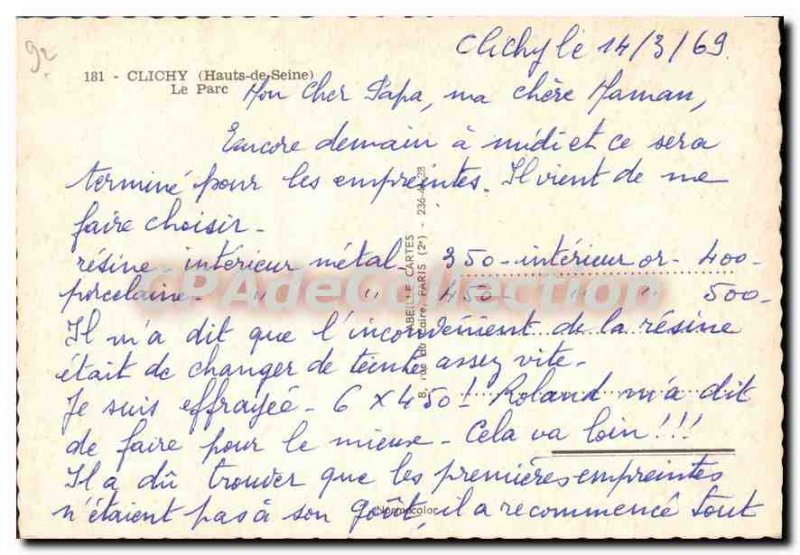 92
Clichy le 14/3/69.
181 - CLICHY (Hauts-de-Seine)
Le Parc
Mon Cher Papa, ma chère Maman,
Encore demain à midi et ce sera
terminé pour les empreintes. Il vient de me
faire choisir -
résine - intérieur métal - 350 - intérieur or - 400 -
porcelaine - " " 450 - " " 500 -
Il m'a dit que l'inconvénient de la résine
était de changer de teinte assez vite -
Je suis effrayée - 6 x 450! Roland m'a dit
de faire pour le mieux - Cela va loin!!!
Il a dû trouver que les premières empreintes
n'étaient pas à son goût, il a recommencé tout
ABEILLE CARTES
8, rue du Caire, PARIS (2e) - 236-
CPADeCollection